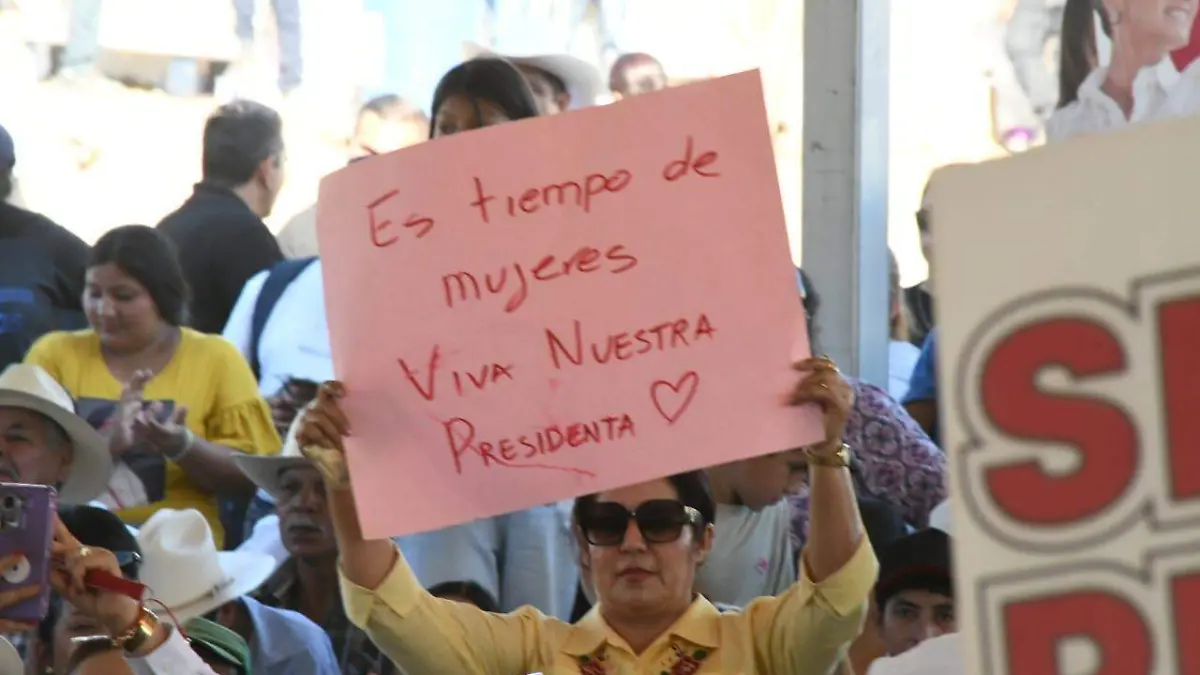 Es tiempo de
mujeres
Viva Nuestra
Presidenta